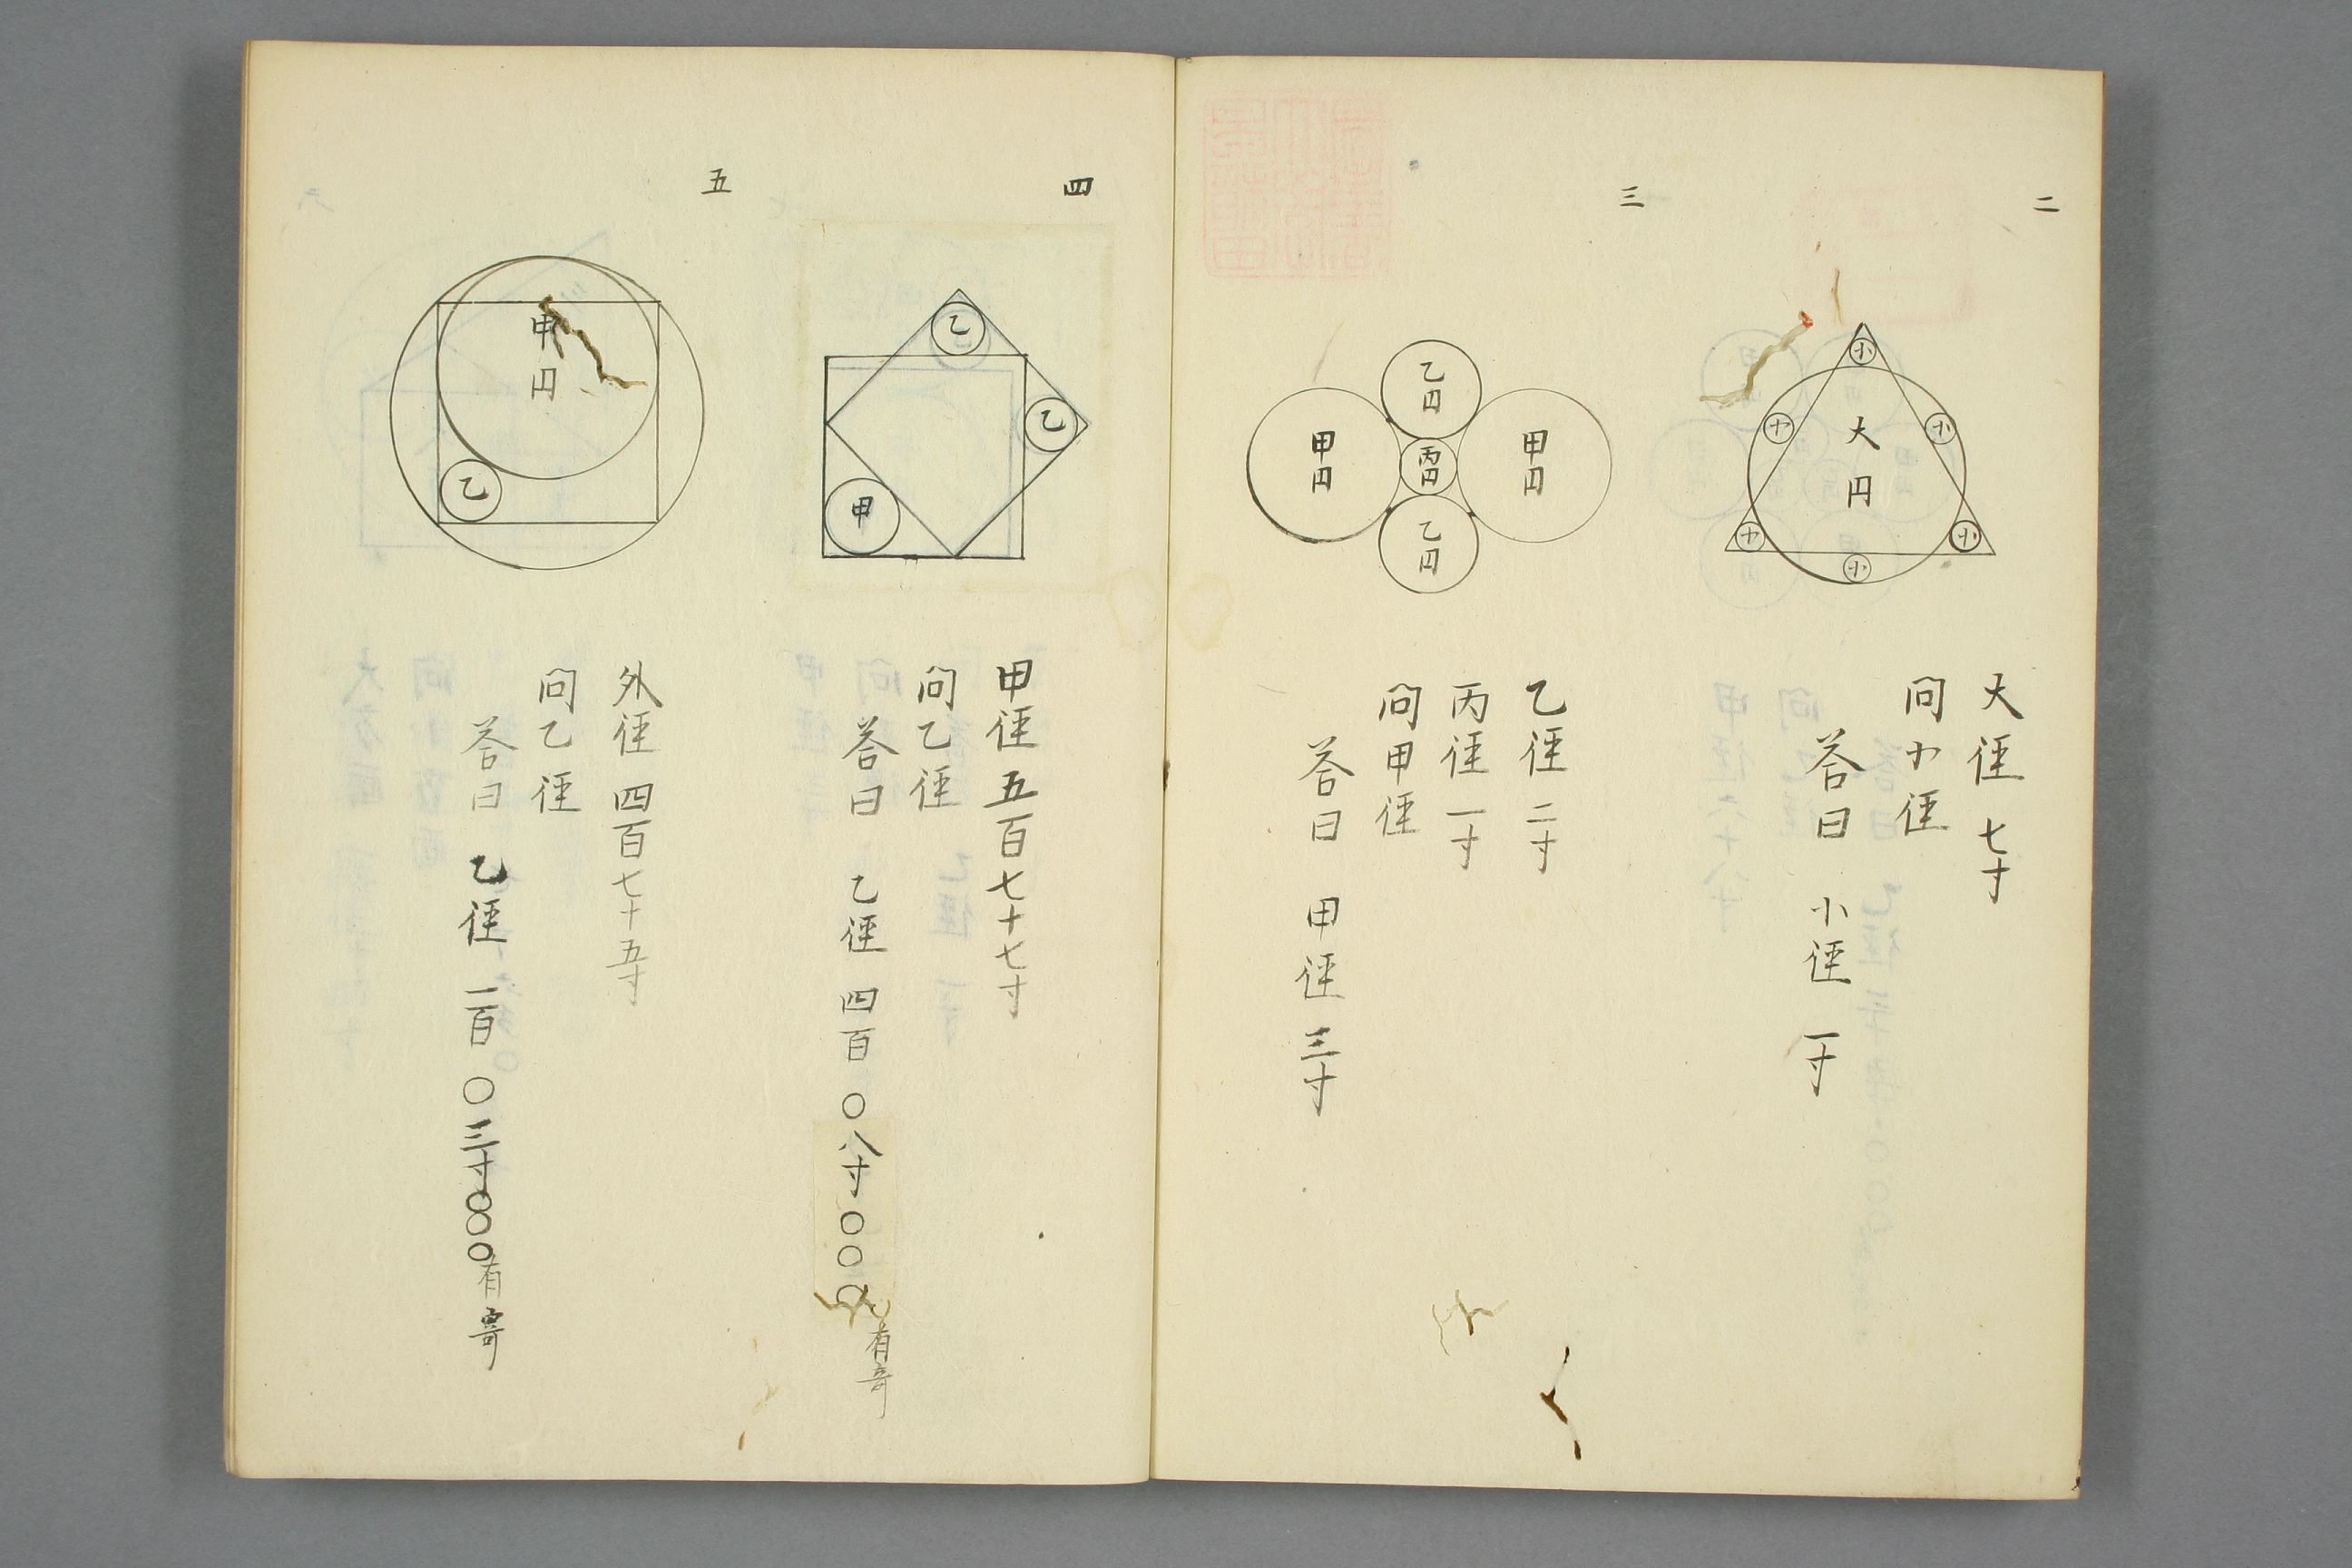 二
小
小
小
大円
小
小
小
大径 七寸
問小径
答曰 小径 一寸
三
乙円
甲円
丙円
甲円
乙円
乙径 二寸
丙径 一寸
問甲径
答曰 甲径 三寸
四
乙
乙
甲
甲径 五百七十七寸
問乙径
答曰 乙径 四百〇八寸〇〇〇有奇
五
甲円
乙
外径 四百七十五寸
問乙径
答曰 乙径 一百〇三寸〇〇〇有寄